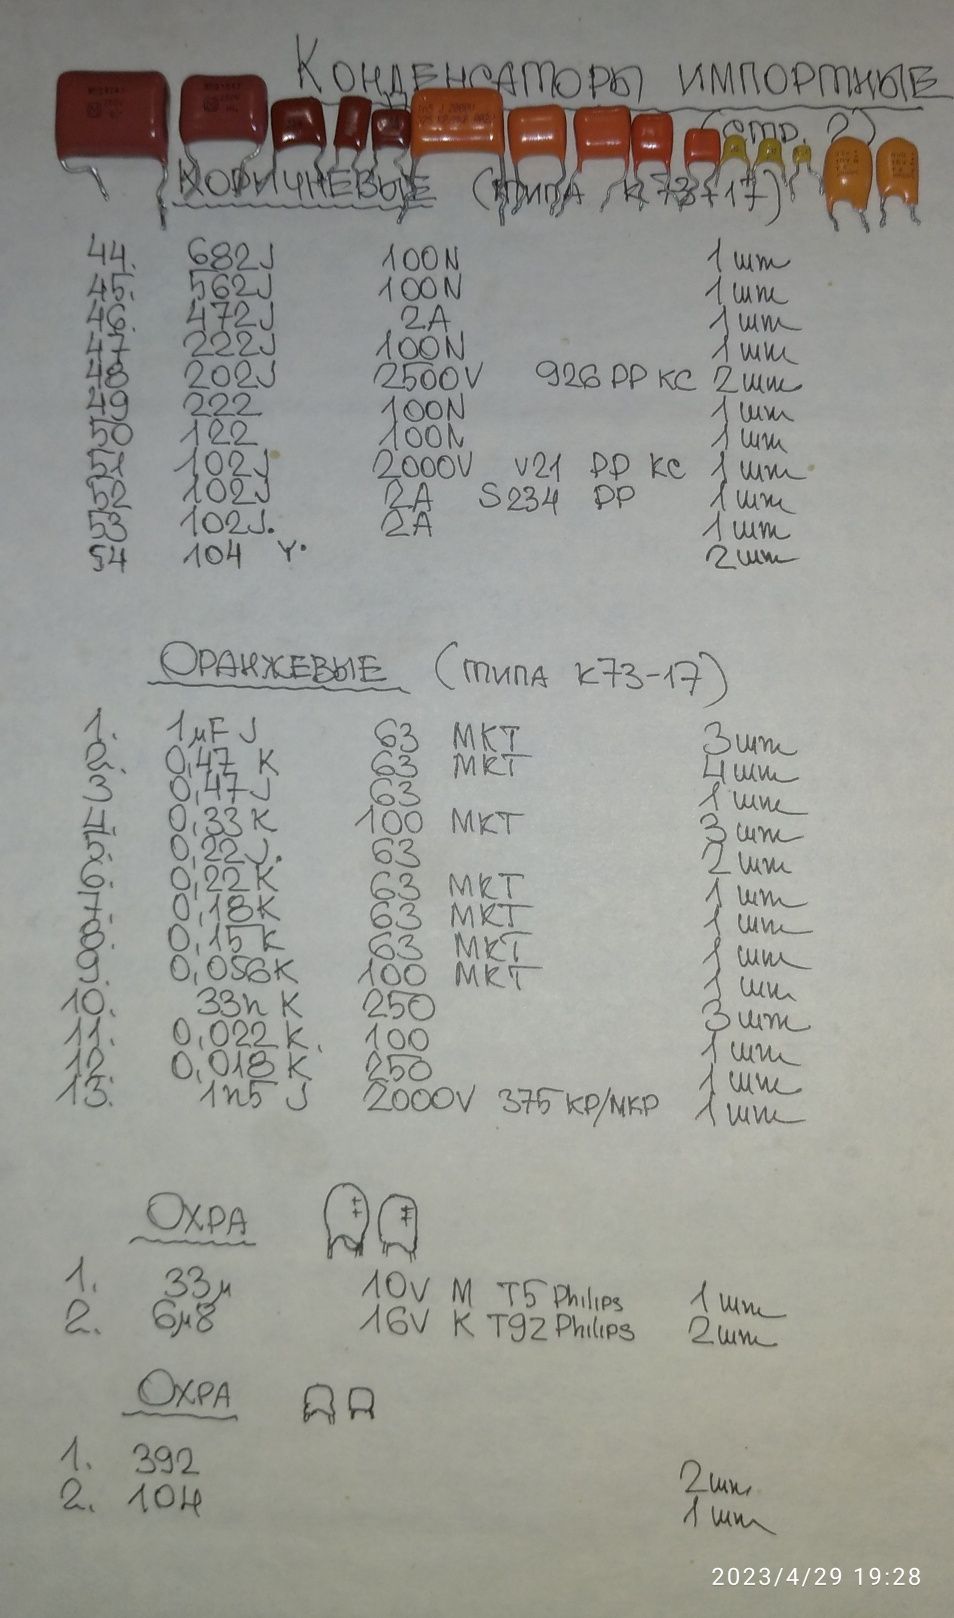 Конденсаторы импортные
(стр. 2)
Коричневые (типа К73-17)
44. 682J 100N 1 шт
45. 562J 100N 1 шт
46. 472J 2A 1 шт
47 222J 100N 1 шт
48 202J 2500V 926 PP KC 2 шт
49 222 100N 1 шт
50 122 100N 1 шт
51 102J 2000V V21 PP KC 1 шт
52 102J 2A S234 PP 1 шт
53 102J. 2A 1 шт
54 104 Y. 2 шт
Оранжевые (типа К73-17)
1. 1μF J 63 MKT 3 шт
2. 0,47 K 63 MKT 4 шт
3 0,47J 63 1 шт
4. 0,33K 100 MKT 3 шт
5. 0,22J. 63 2 шт
6. 0,22K 63 MKT 1 шт
7. 0,18K 63 MKT 1 шт
8. 0,15K 63 MKT 1 шт
9. 0,056K 100 MKT 1 шт
10. 33n K 250 3 шт
11. 0,022 K. 100 1 шт
12. 0,018 K 250 1 шт
13. 1n5 J 2000V 375 KP/MKP 1 шт
Охра
1. 33μ 10V M T5 Philips 1 шт
2. 6μ8 16V K T92 Philips 2 шт
Охра
1. 392 2 шт
2. 104 1 шт
2023/4/29 19:28